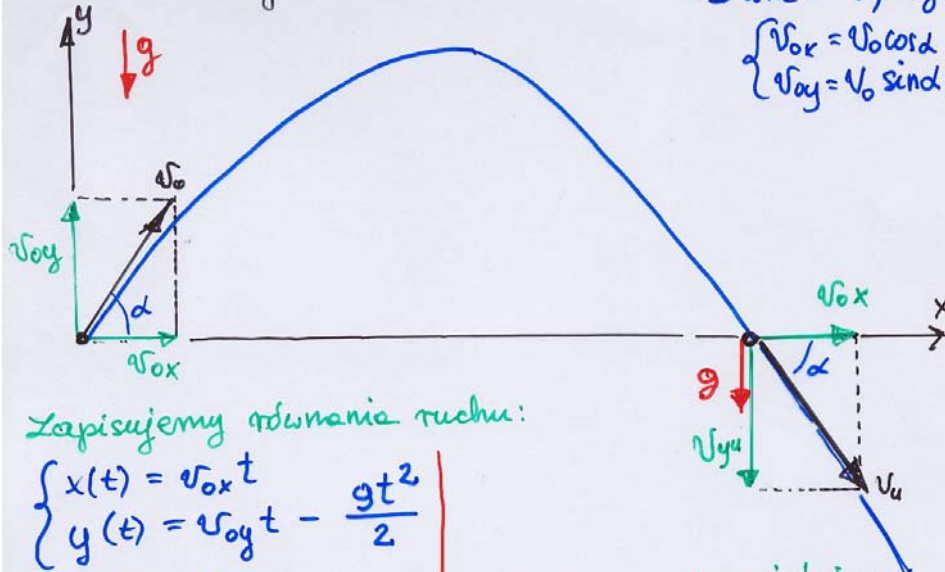 y
g
v₀ₓ = v₀ cosα
v₀y = v₀ sinα
v₀
v₀y
α
v₀ₓ
v₀ₓ
x
α
g
vyu
vu
Zapisujemy równania ruchu:
x(t) = v₀ₓt
y(t) = v₀yt - gt²/2